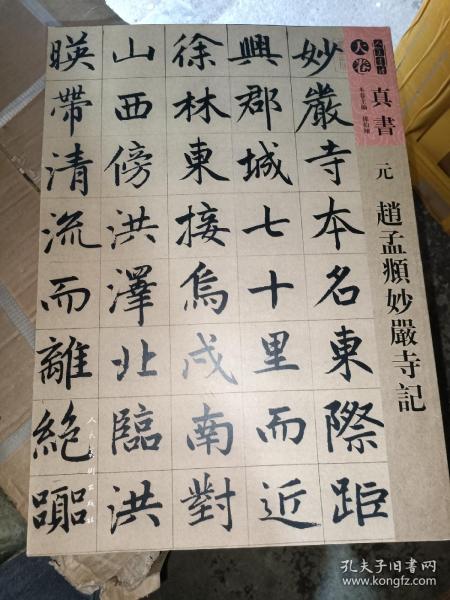 大卷
真書
元 趙孟頫妙嚴寺記
妙嚴寺本名東際距
興郡城七十里而近
徐林東接烏戍南對
山西傍洪澤北臨洪
暎帶清流而離絶囂
人民美術出版社
孔夫子旧书网
www.kongfz.com